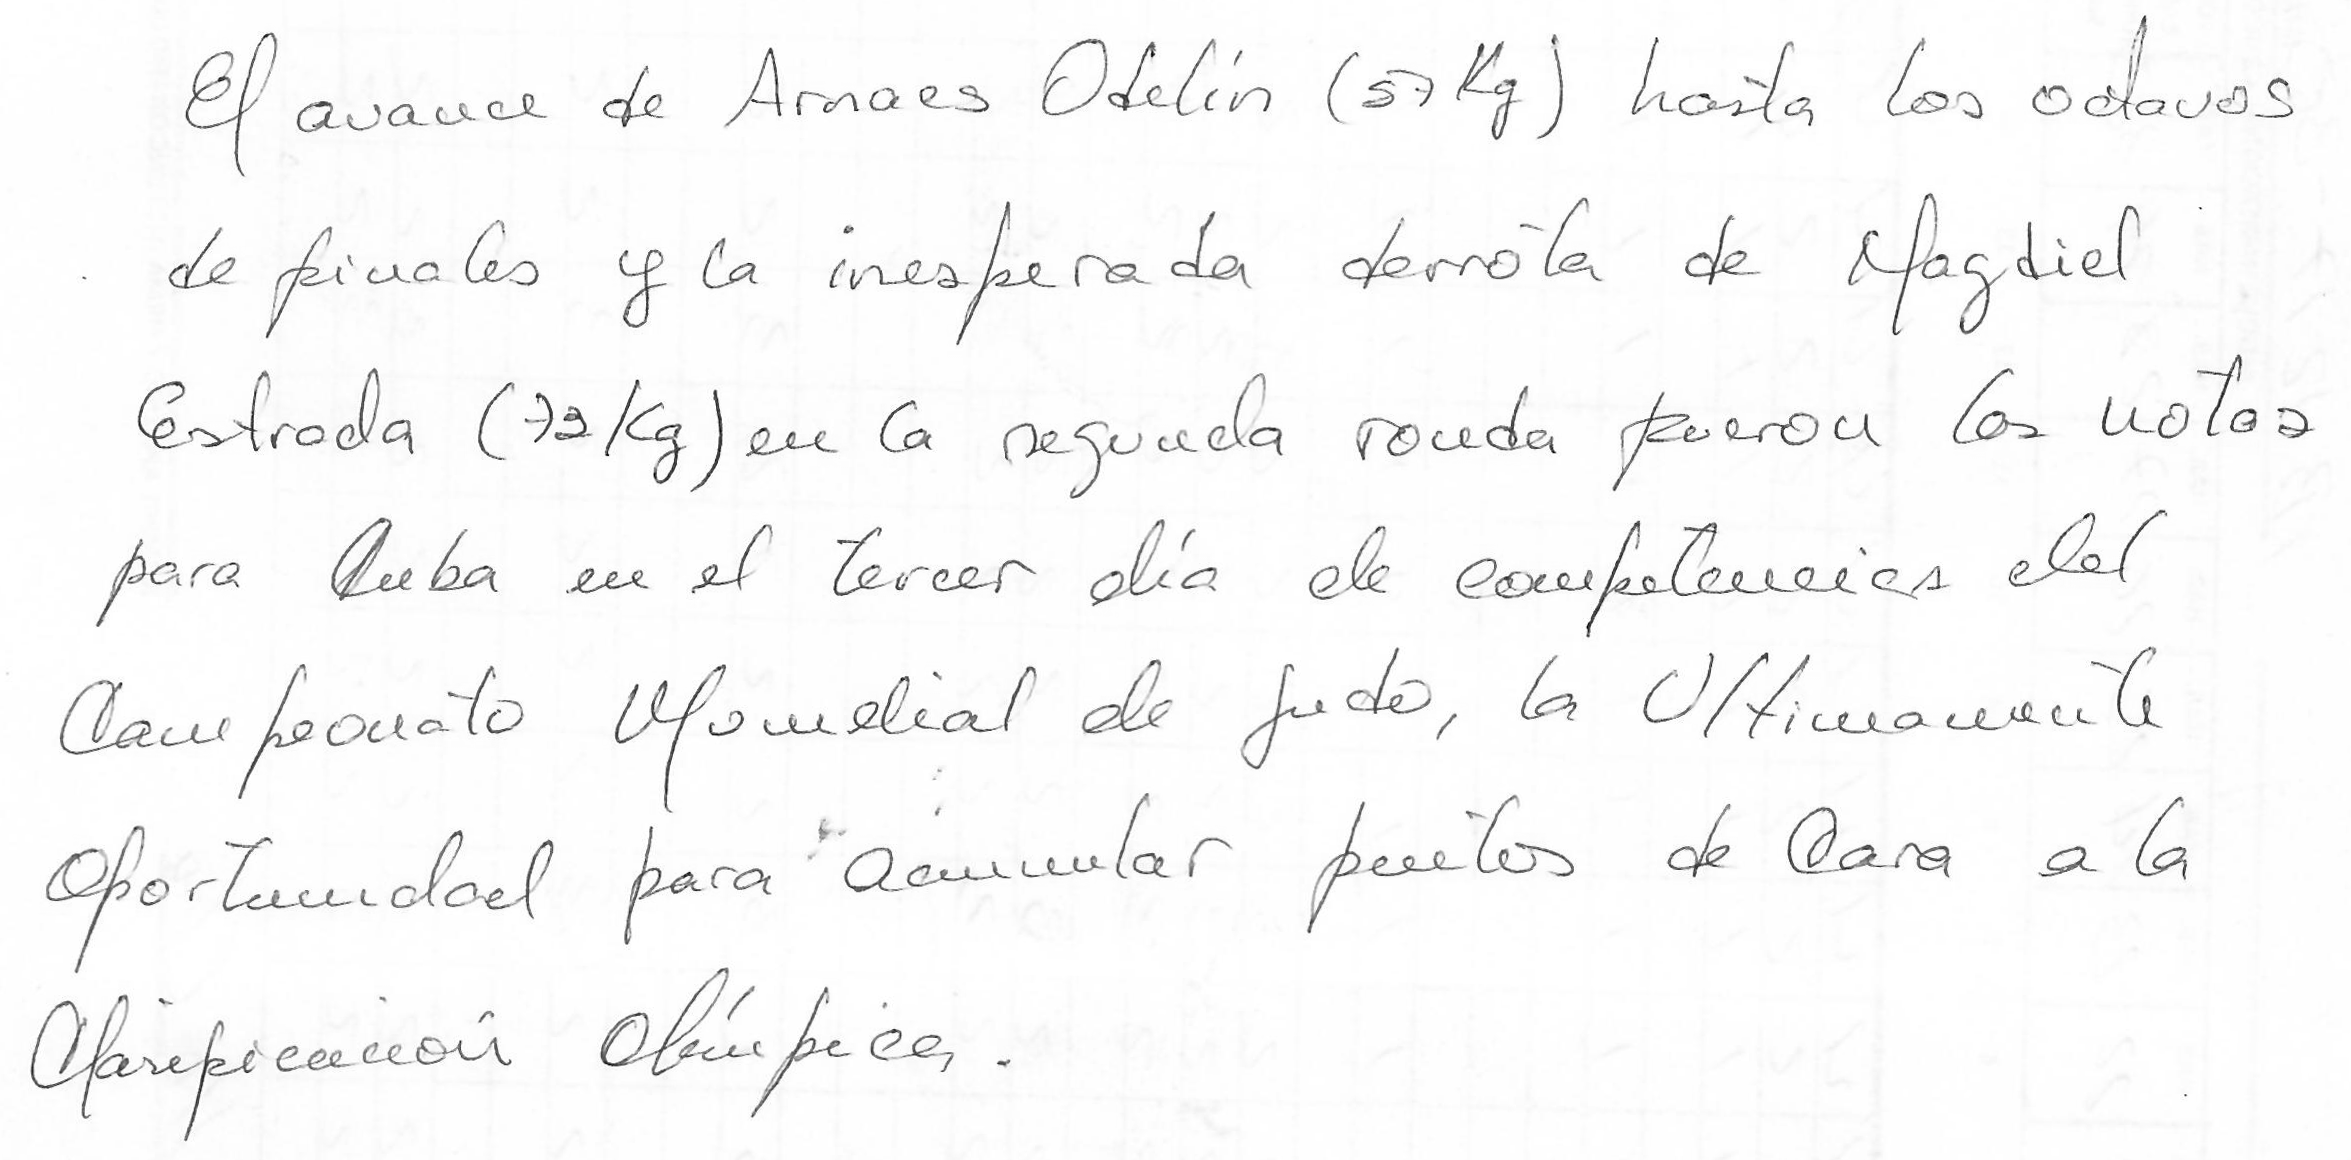 El avance de Arnaes Odelín (57Kg) hasta los octavos
de finales y la inesperada derrota de Magdiel
Estrada (73Kg) en la segunda ronda fueron las notas
para Cuba en el tercer día de competencias del
Campeonato Mundial de Judo, la Ultimamente
Oportunidad para acumular puntos de Cara a la
Clasificación Olímpica.